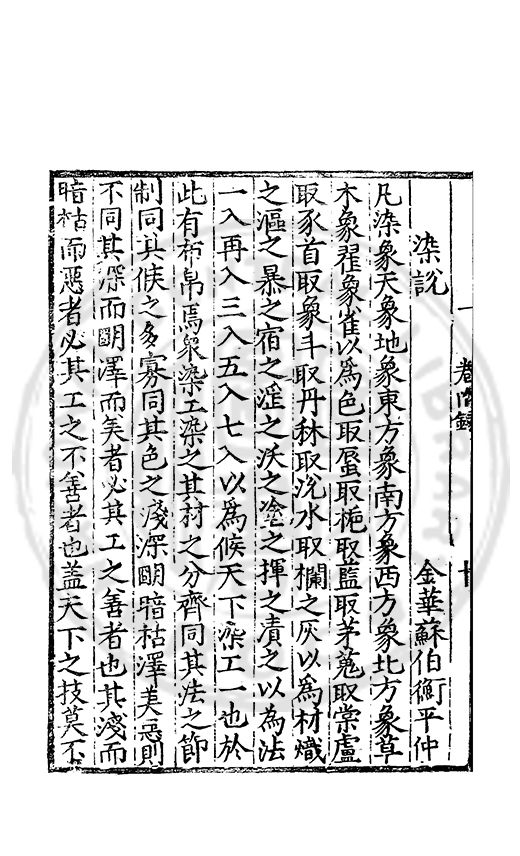 染說 金華蘇伯衡平仲
凡染象天象地象東方象南方象西方象北方象草
木象翟象雀以爲色取蜃取梔取藍取茅蒐取棠盧
取豕首取象斗取丹秫取涗水取欄之灰以爲材熾
之漚之暴之宿之淫之沃之塗之揮之漬之以為法
一入再入三入五入七入以爲候天下染工一也於
此有布帛焉衆染工染之其材之分齊同其法之節
制同其候之多寡同其色之淺深朙暗枯澤美惡則
不同其深而朙澤而美者必其工之善者也其淺而
暗枯而惡者必其工之不善者也蓋天下之技莫不